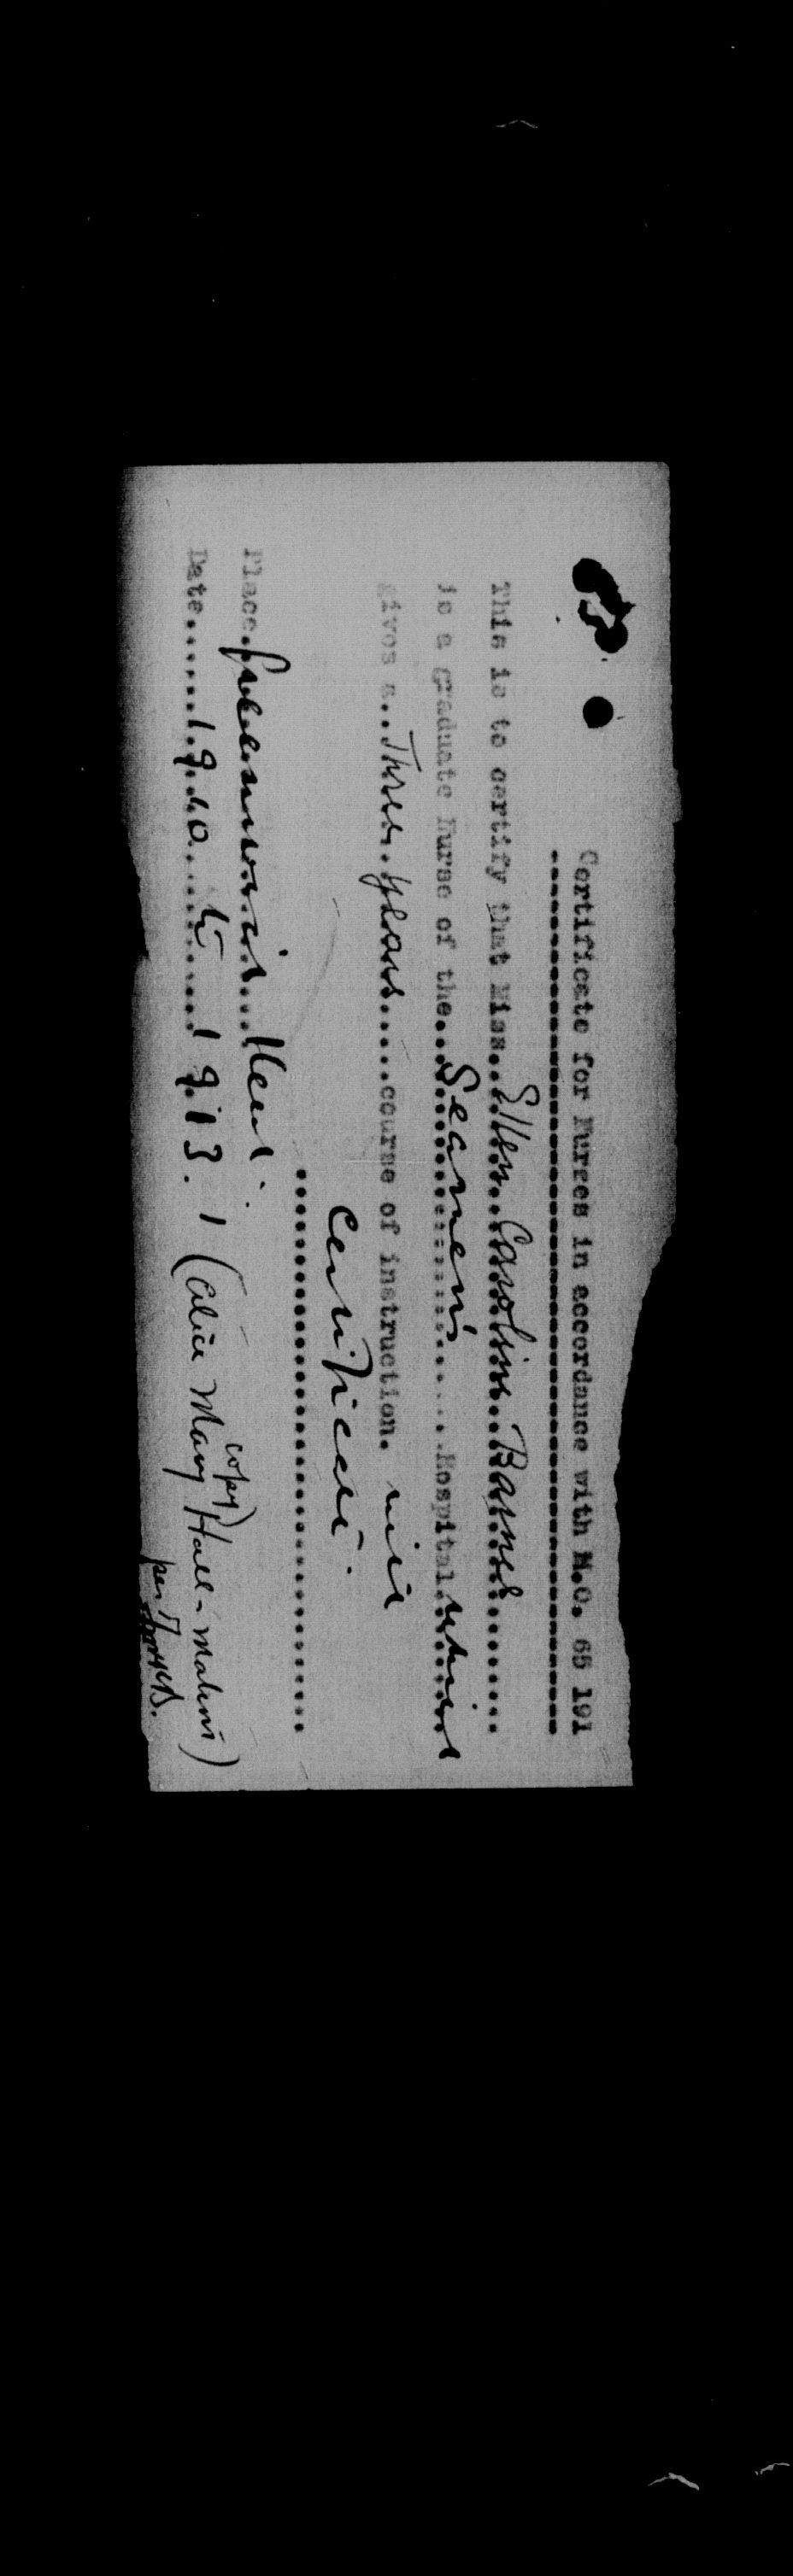 Certificate for Nurses in accordance with M.O. 65 191
This is to certify that Miss..Ellen Caroline Barnes
is a graduate Nurse of the...Seamen's Hospital which
gives a..Three years.....course of instruction. with
Certificate.
Place. Greenwich Kent.
Date 1910 to 1913. (Alice Mary Hall - Matron)
copy)
per